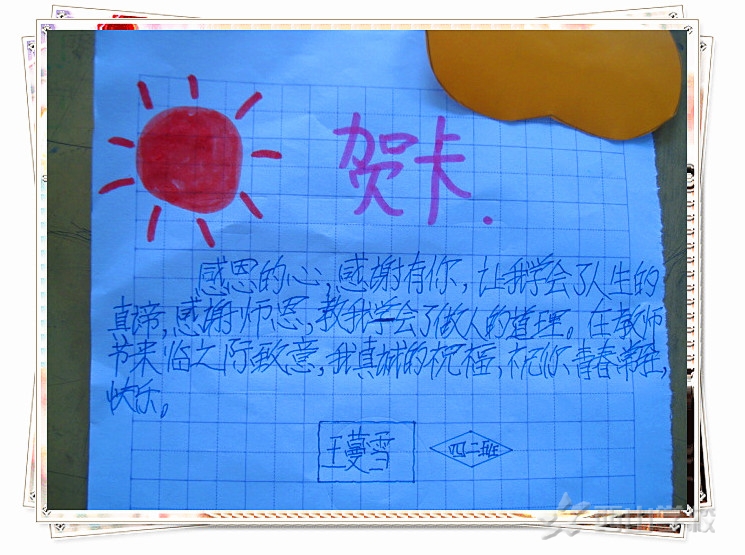 贺卡.
感恩的心,感谢有你,让我学会了人生的
真谛,感谢师恩,教我学会了做人的道理。在教师
节来临之际致意,我真诚的祝福,祝你青春常驻,
快乐。
王蔓雪
四二班
西山学校